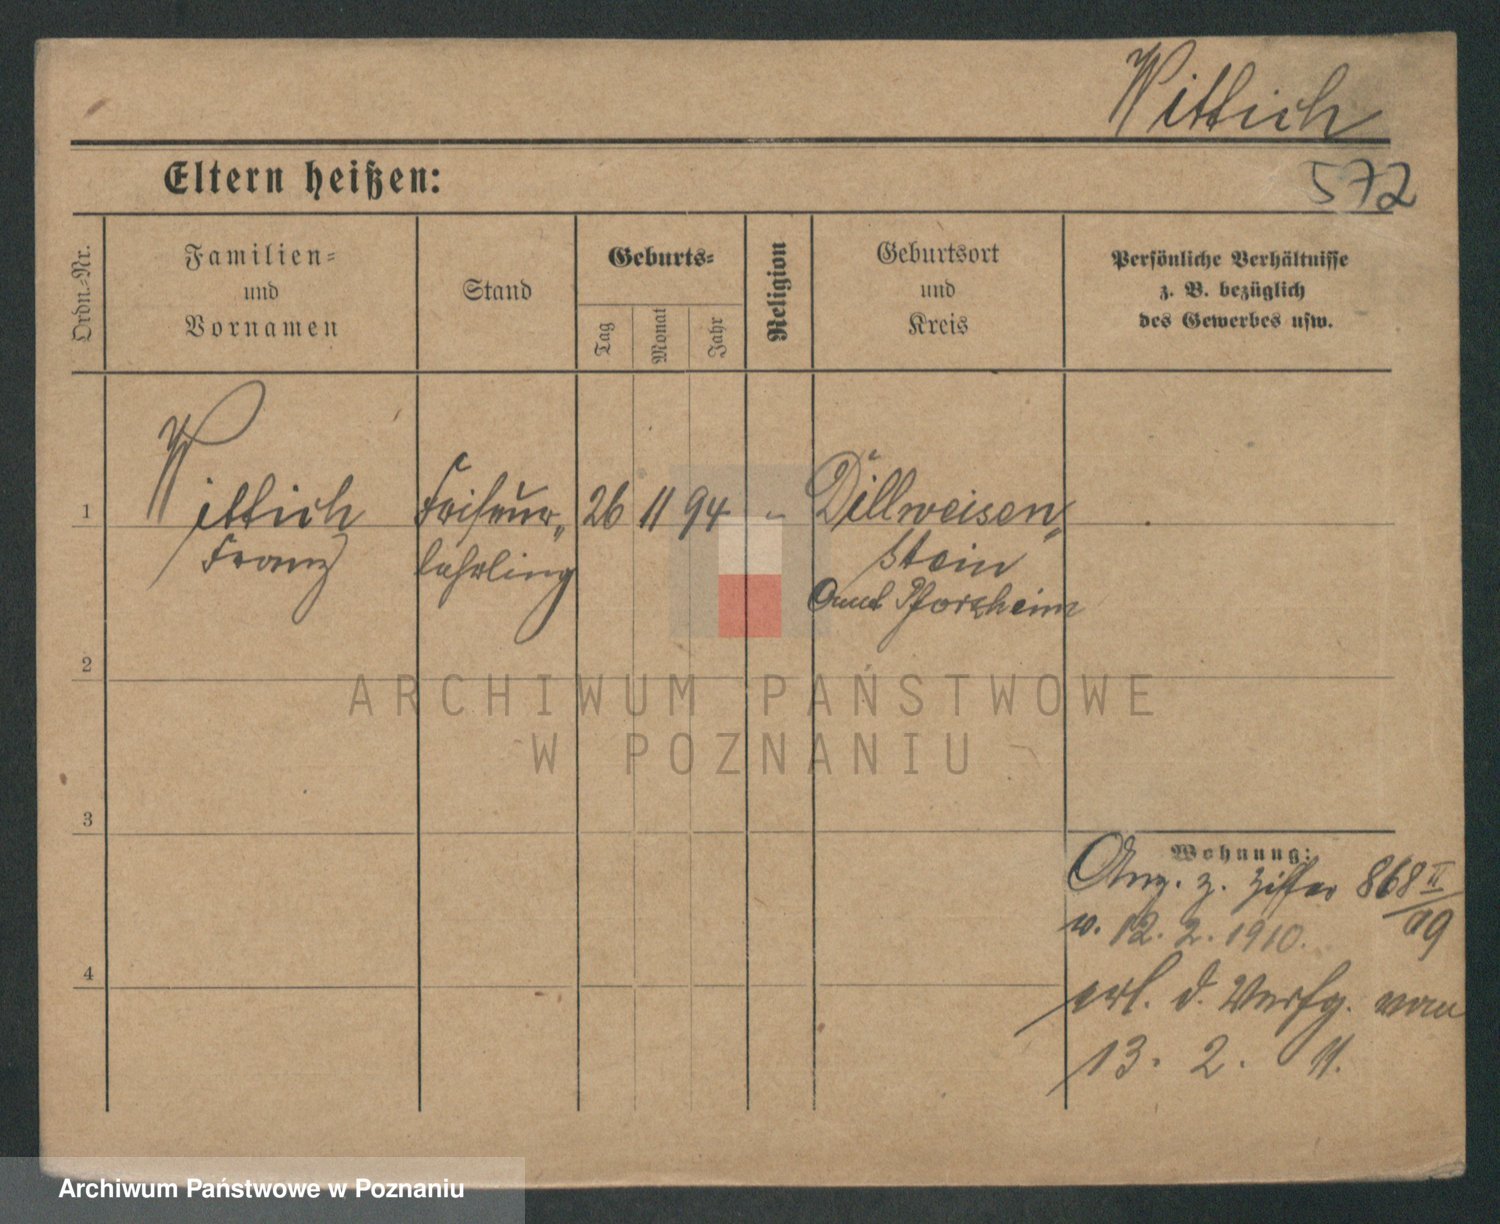 Wittich
572
Eltern heißen:
Ordn.-Nr.
Familien-
und
Vornamen
Stand
Geburts-
Tag
Monat
Jahr
Religion
Geburtsort
und
Kreis
Persönliche Verhältnisse
z. B. bezüglich
des Gewerbes usw.
1
Wittich
Franz
Friseur„
lehrling
26
11
94
-
Dillweisen„
stein
Amt Pforzheim
2
3
4
Wohnung:
Anz. z. Ziffer 868 II/09
v. 12. 2. 1910.
erl. d. Verfg. vom
13. 2. 11.
ARCHIWUM PAŃSTWOWE
W POZNANIU
Archiwum Państwowe w Poznaniu